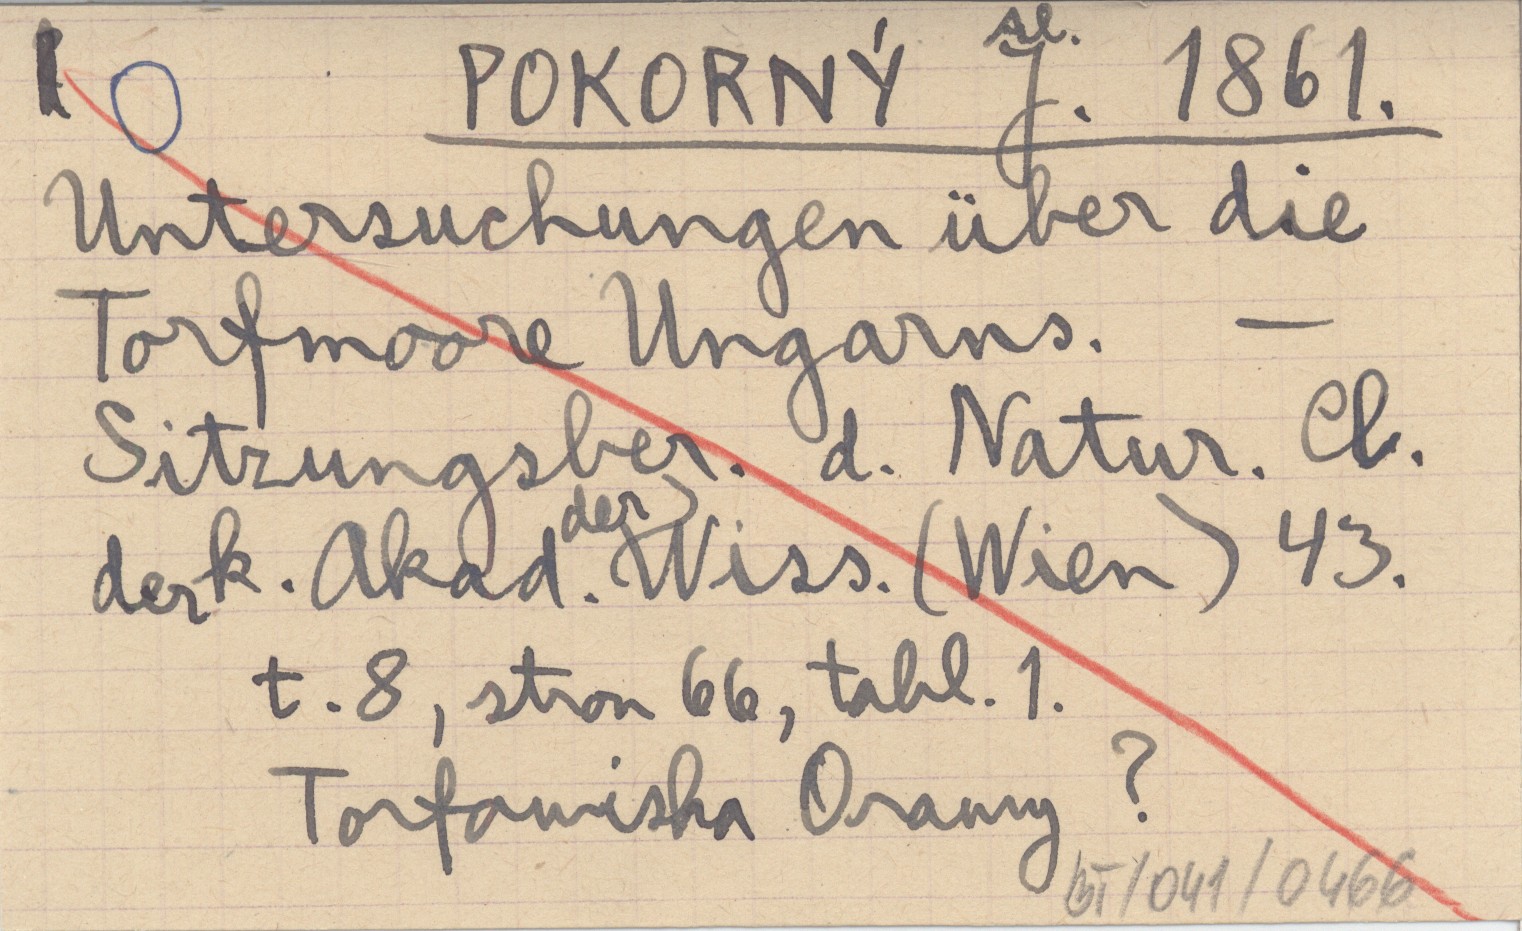 POKORNÝ J. 1861.
Untersuchungen über die
Torfmoore Ungarns. —
Sitzungsber. d. Natur. Cl.
der k. Akad. der Wiss. (Wien) 43.
t. 8, stron 66, tabl. 1.
Torfowiska Orawy ?
BT/041/0466